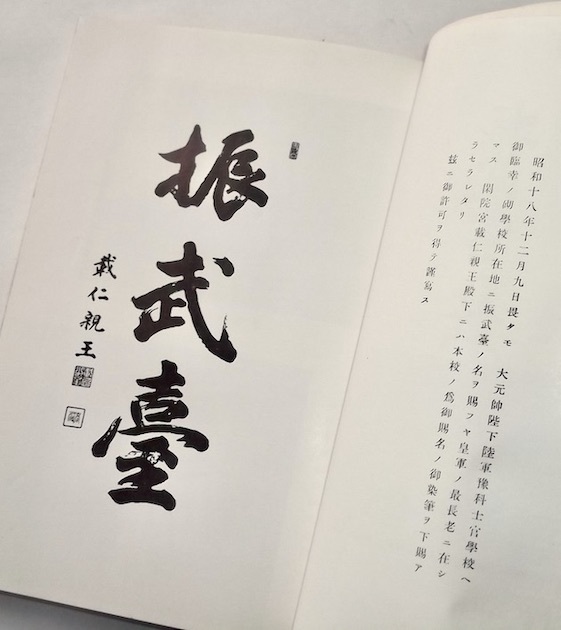 昭和十八年十二月九日畏クモ　大元帥陛下陸軍豫科士官學校ヘ
御臨幸ノ砌學校所在地ニ振武臺ノ名ヲ賜フヤ皇軍ノ最長老ニ在シ
マス　閑院宮載仁親王殿下ニハ本校ノ爲御賜名ノ御染筆ヲ下賜ア
ラセラレタリ
茲ニ御許可ヲ得テ謹寫ス
振武臺
載仁親王